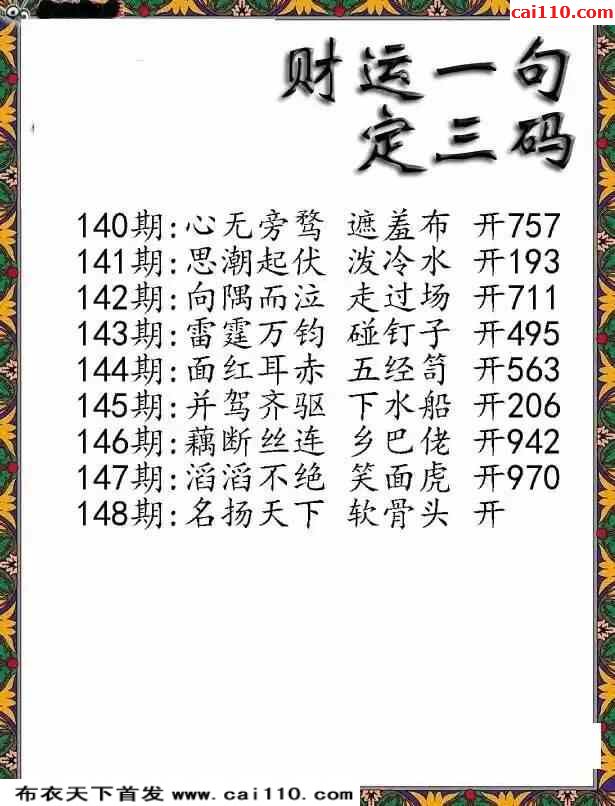 cai110.com
财运一句
定三码
140期:心无旁骛 遮羞布 开757
141期:思潮起伏 泼冷水 开193
142期:向隅而泣 走过场 开711
143期:雷霆万钧 碰钉子 开495
144期:面红耳赤 五经笥 开563
145期:并驾齐驱 下水船 开206
146期:藕断丝连 乡巴佬 开942
147期:滔滔不绝 笑面虎 开970
148期:名扬天下 软骨头 开
布衣天下首发 www.cai110.com